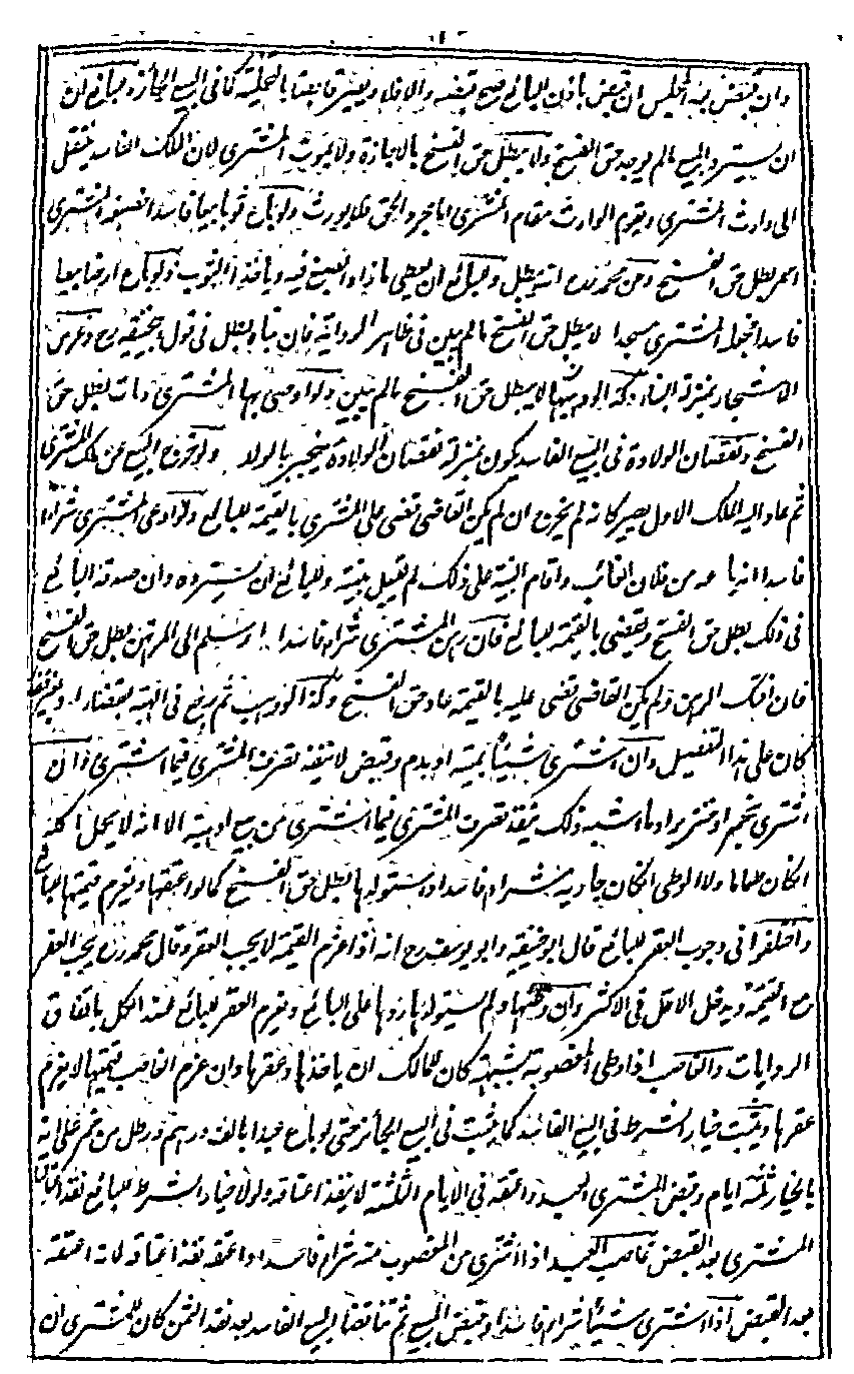 وان قبضه بعد المجلس ان قبض باذن البائع صح قبضه والا فلا ويصير قابضا بالتخلية كما في البيع الجائز وللبائع ان
ان يسترد المبيع ما لم يوجد حق الفسخ ولا يبطل حق الفسخ بالاجازة ولا بموت المشتري لان الملك الفاسد ينتقل
الى وارث المشتري ويقوم الوارث مقام المشتري اما مجرد الحق فلا يورث ولو باع ثوبا بيعا فاسدا فصبغه المشتري
احمر بطل حق الفسخ وعن محمد رح انه يبطل وللبائع ان يعطي ما زاد الصبغ فيه وياخذ الثوب ولو باع ارضا بيعا
فاسدا فجعل المشتري مسجدا لا يبطل حق الفسخ ما لم يبن في ظاهر الرواية فان بنا يبطل في قول ابي حنيفة رح وغرس
الاشجار بمنزلة البناء وكذا لو رهنها لا يبطل حق الفسخ ما لم يبين ولو اوصى بها المشتري ومات بطل حق
الفسخ ونقصان الولادة في البيع الفاسد يكون بمنزلة نقصان الولادة ينجبر بالولد ولو خرج المبيع عن ملك المشتري
ثم عاد اليه الملك الاول يصير كانه لم يخرج ان لم يكن القاضي قضى على المشتري بالقيمة للبائع ولو ادعى المشتري شراءا
فاسدا انه باعه من فلان الغائب واقام البينة على ذلك لم تقبل بينته وللبائع ان يسترده وان صدقه البائع
في ذلك بطل حق الفسخ ويقضي بالقيمة للبائع فان رهن المشتري شراء فاسدا وسلم الى المرتهن بطل حق الفسخ
فان افتك الرهن ولم يكن القاضي قضى عليه بالقيمة عاد حق الفسخ وكذا لو وهب ثم رجع في الهبة بقضاء او بغير قضاء
كان على هذا التفصيل وان اشترى شيئا بميتة او بدم وقبض لا ينفذ تصرف المشتري فيما اشترى وان
اشترى بخمر او خنزير او ما اشبه ذلك ينفذ تصرف المشتري فيما اشترى من بيع او هبة الا انه لا يحل اكله
ان كان طعاما ولا الوطي ان كان جارية شراء فاسدا واستولدها بطل حق الفسخ كما لو اعتقها ويغرم قيمتها للبائع
واختلفوا في وجوب العقر للبائع قال ابو حنيفة وابو يوسف رح انه اذا غرم القيمة لا يجب العقر وقال محمد رح يجب العقر
مع القيمة ويدخل الاقل في الاكثر وان وطئها ولم يستولدها ردها على البائع ويغرم العقر للبائع عند الكل باتفاق
الروايات والغاصب اذا وطى المغصوبة بشبهة كان للمالك ان ياخذها وعقرها وان غرم الغاصب قيمتها لا يغرم
عقرها ويثبت خيار الشرط في البيع الفاسد كما يثبت في البيع الجائز حتى لو باع عبدا بالف درهم ورطل من خمر على انه
بالخيار ثلثة ايام وقبض المشتري العبد واعتقه في الايام الثلثة لا ينفذ اعتاقه ولولا خيار الشرط للبائع نفذ اعتاق
المشتري بعد القبض غاصب العبد اذا اشترى من المغصوب منه شراء فاسدا واعتقه نفذ اعتاقه لانه اعتقه
بعد القبض اذا اشترى شيئا شراء فاسدا وقبض المبيع ثم تناقضا البيع الفاسد بعد نقد الثمن كان للمشتري ان